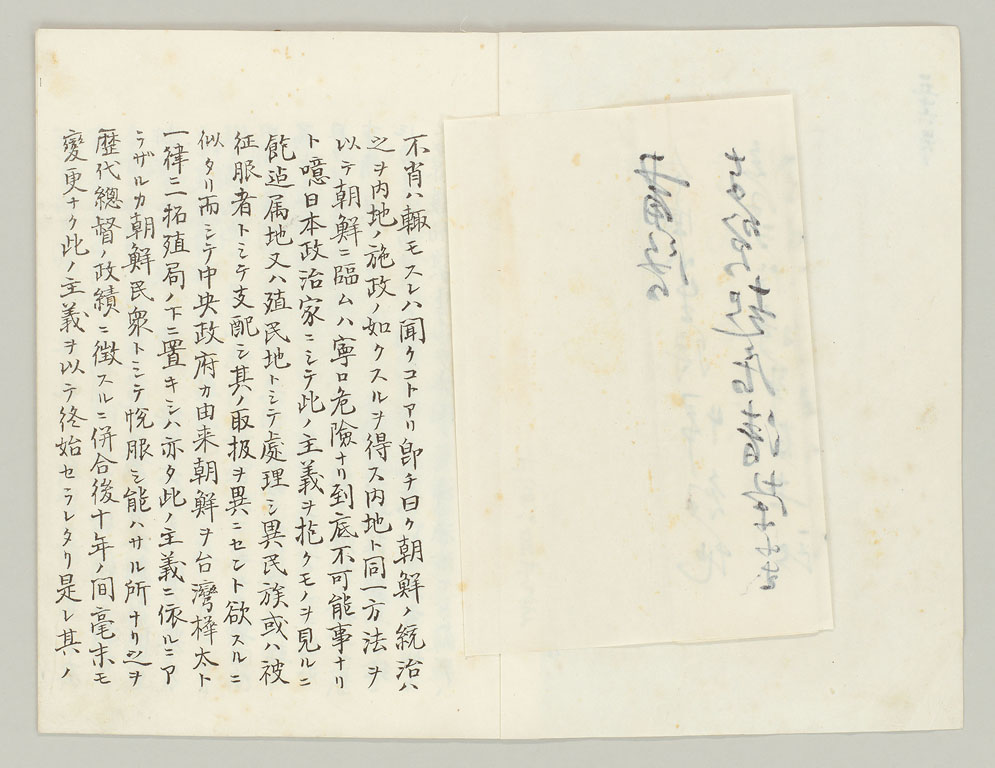 不肖ハ輙モスレハ聞クコトアリ卽チ曰ク朝鮮ノ統治ハ
之ヲ内地ノ施政ノ如クスルヲ得ス内地ト同一方法ヲ
以テ朝鮮ニ臨ムハ寧ロ危險ナリ到底不可能事ナリ
ト噫日本政治家ニシテ此ノ主義ヲ抱クモノヲ見ルニ
飽迠属地又ハ殖民地トシテ處理シ異民族或ハ被
征服者トシテ支配シ其ノ取扱ヲ異ニセント欲スルニ
似タリ而シテ中央政府カ由来朝鮮ヲ台灣樺太ト
一律ニ拓殖局ノ下ニ置キシハ亦タ此ノ主義ニ依ルニア
ラザルカ朝鮮民衆トシテ悅服シ能ハサル所ナリ之ヲ
歷代總督ノ政績ニ徵スルニ併合後十年ノ間毫末モ
變更ナク此ノ主義ヲ以テ終始セラレタリ是レ其ノ